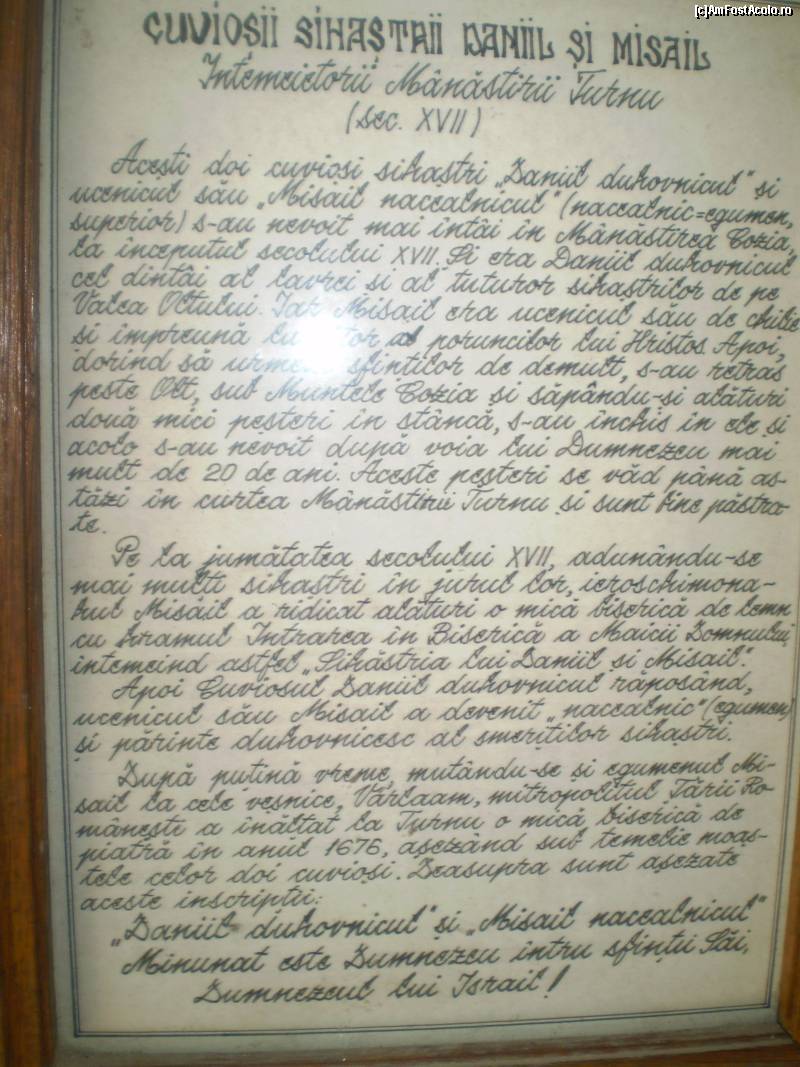 [c]AmFostAcolo.ro
CUVIOȘII SIHAȘTRII DANIIL ȘI MISAIL
Întemeietorii Mânăstirii Turnu
(sec. XVII)
Acești doi cuvioși sihaștri „Daniil duhovnicul" și
ucenicul său „Misail naccealnicul" (naccealnic=egumen,
superior) s-au nevoit mai întâi în Mânăstirea Cozia,
la începutul secolului XVII. Și era Daniil duhovnicul
cel dintâi al lavrei și al tuturor sihaștrilor de pe
Valea Oltului. Iar Misail era ucenicul său de chilie
și împreună al poruncilor lui Hristos Apoi,
dorind să sfinților de demult, s-au retras
peste Olt, sub Muntele Cozia și săpându-și alături
două mici peșteri în stâncă, s-au închis în ele și
acolo s-au nevoit după voia lui Dumnezeu mai
mult de 20 de ani. Aceste peșteri se văd până as-
tăzi în curtea Mânăstirii Turnu și sunt bine păstra-
te.
Pe la jumătatea secolului XVII, adunându-se
mai mulți sihaștri în jurul lor, ieroschimona-
hul Misail a ridicat alături o mică biserică de lemn
cu hramul Intrarea în Biserică a Maicii Domnului,
întemeind astfel „Sihăstria lui Daniil și Misail".
Apoi Cuviosul Daniil duhovnicul răposând,
ucenicul său Misail a devenit „naccealnic" (egumen)
și părinte duhovnicesc al smeriților sihaștri.
După puțină vreme, mutându-se și egumenul Mi-
sail la cele veșnice, Varlaam, mitropolitul Țării Ro-
mânești a înălțat la Turnu o mică biserică de
piatră în anul 1676, așezând sub temelie moaș-
tele celor doi cuvioși. Deasupra sunt așezate
aceste inscripții:
„Daniil duhovnicul" și „Misail naccealnicul"
Minunat este Dumnezeu întru sfinții Săi,
Dumnezeul lui Israil!